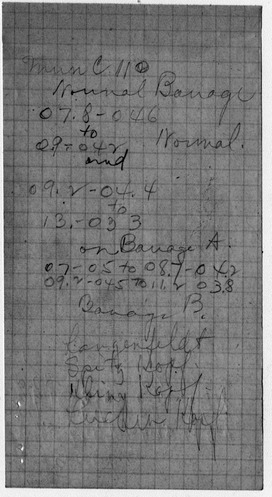 C 110
Normal Barrage
07.8-046
to Normal.
09-042
and
09.2-04.4
to
13.-033
on Barrage A.
07-05 to 08.7-042
09.2-045 to 11.2 038
Barrage B.
Langenfeldt
Spitz Kopf
Kopf
Kopf